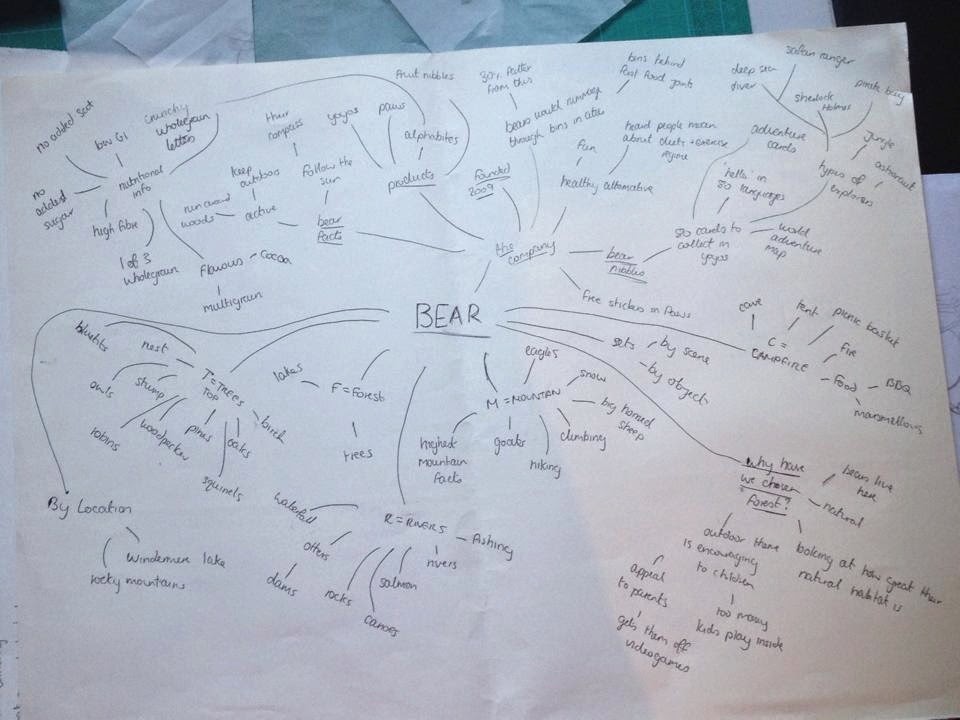 no added salt
low GI
no
added
sugar
crunchy
wholegrain
letters
nutritional
info
high fibre
1 of 3
wholegrain
flavours - cocoa
multigrain
their
compass
keep
outdoors
run around
woods
active
follow the
sun
bear
facts
yoyos
paws
alphabites
fruit nibbles
products
founded
2009
30% fatter
from this
bears would rummage
through bins in
bins behind
fast food joints
fun
healthy alternative
heard people moan
about diets + exercise
regime
the
company
bear
nibbles
free stickers in Paws
deep sea
diver
safari ranger
sherlock
Holmes
pirate bay
jungle
astronaut
types of
explorers
adventure
cards
'hello' in
50 languages
50 cards to
collect in
yoyos
world
adventure
map
BEAR
sets
by scene
by object
cave
tent
picnic basket
fire
C =
CAMPFIRE
Food
BBQ
marsmellows
bluetits
nest
owls
stump
T = TREES
TOP
robins
woodpecker
pines
oaks
birch
squirrels
lakes
F = FOREST
trees
eagles
M = MOUNTAIN
snow
big horned
sheep
climbing
hiking
goats
highest
mountain
facts
By Location
Windermere lake
rocky mountains
waterfall
otters
dams
R = RIVERS
fishing
rivers
salmon
rocks
canoes
why have
we chosen
forest?
bears live
here
natural
looking at how great their
natural habitat is
outdoor theme
is encouraging
to children
too many
kids play inside
appeal
to parents
gets them off
videogames